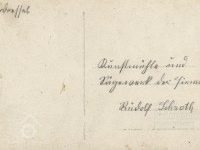 Kunstmühle und
Sägewerk der Firma
Rudolf Schroth